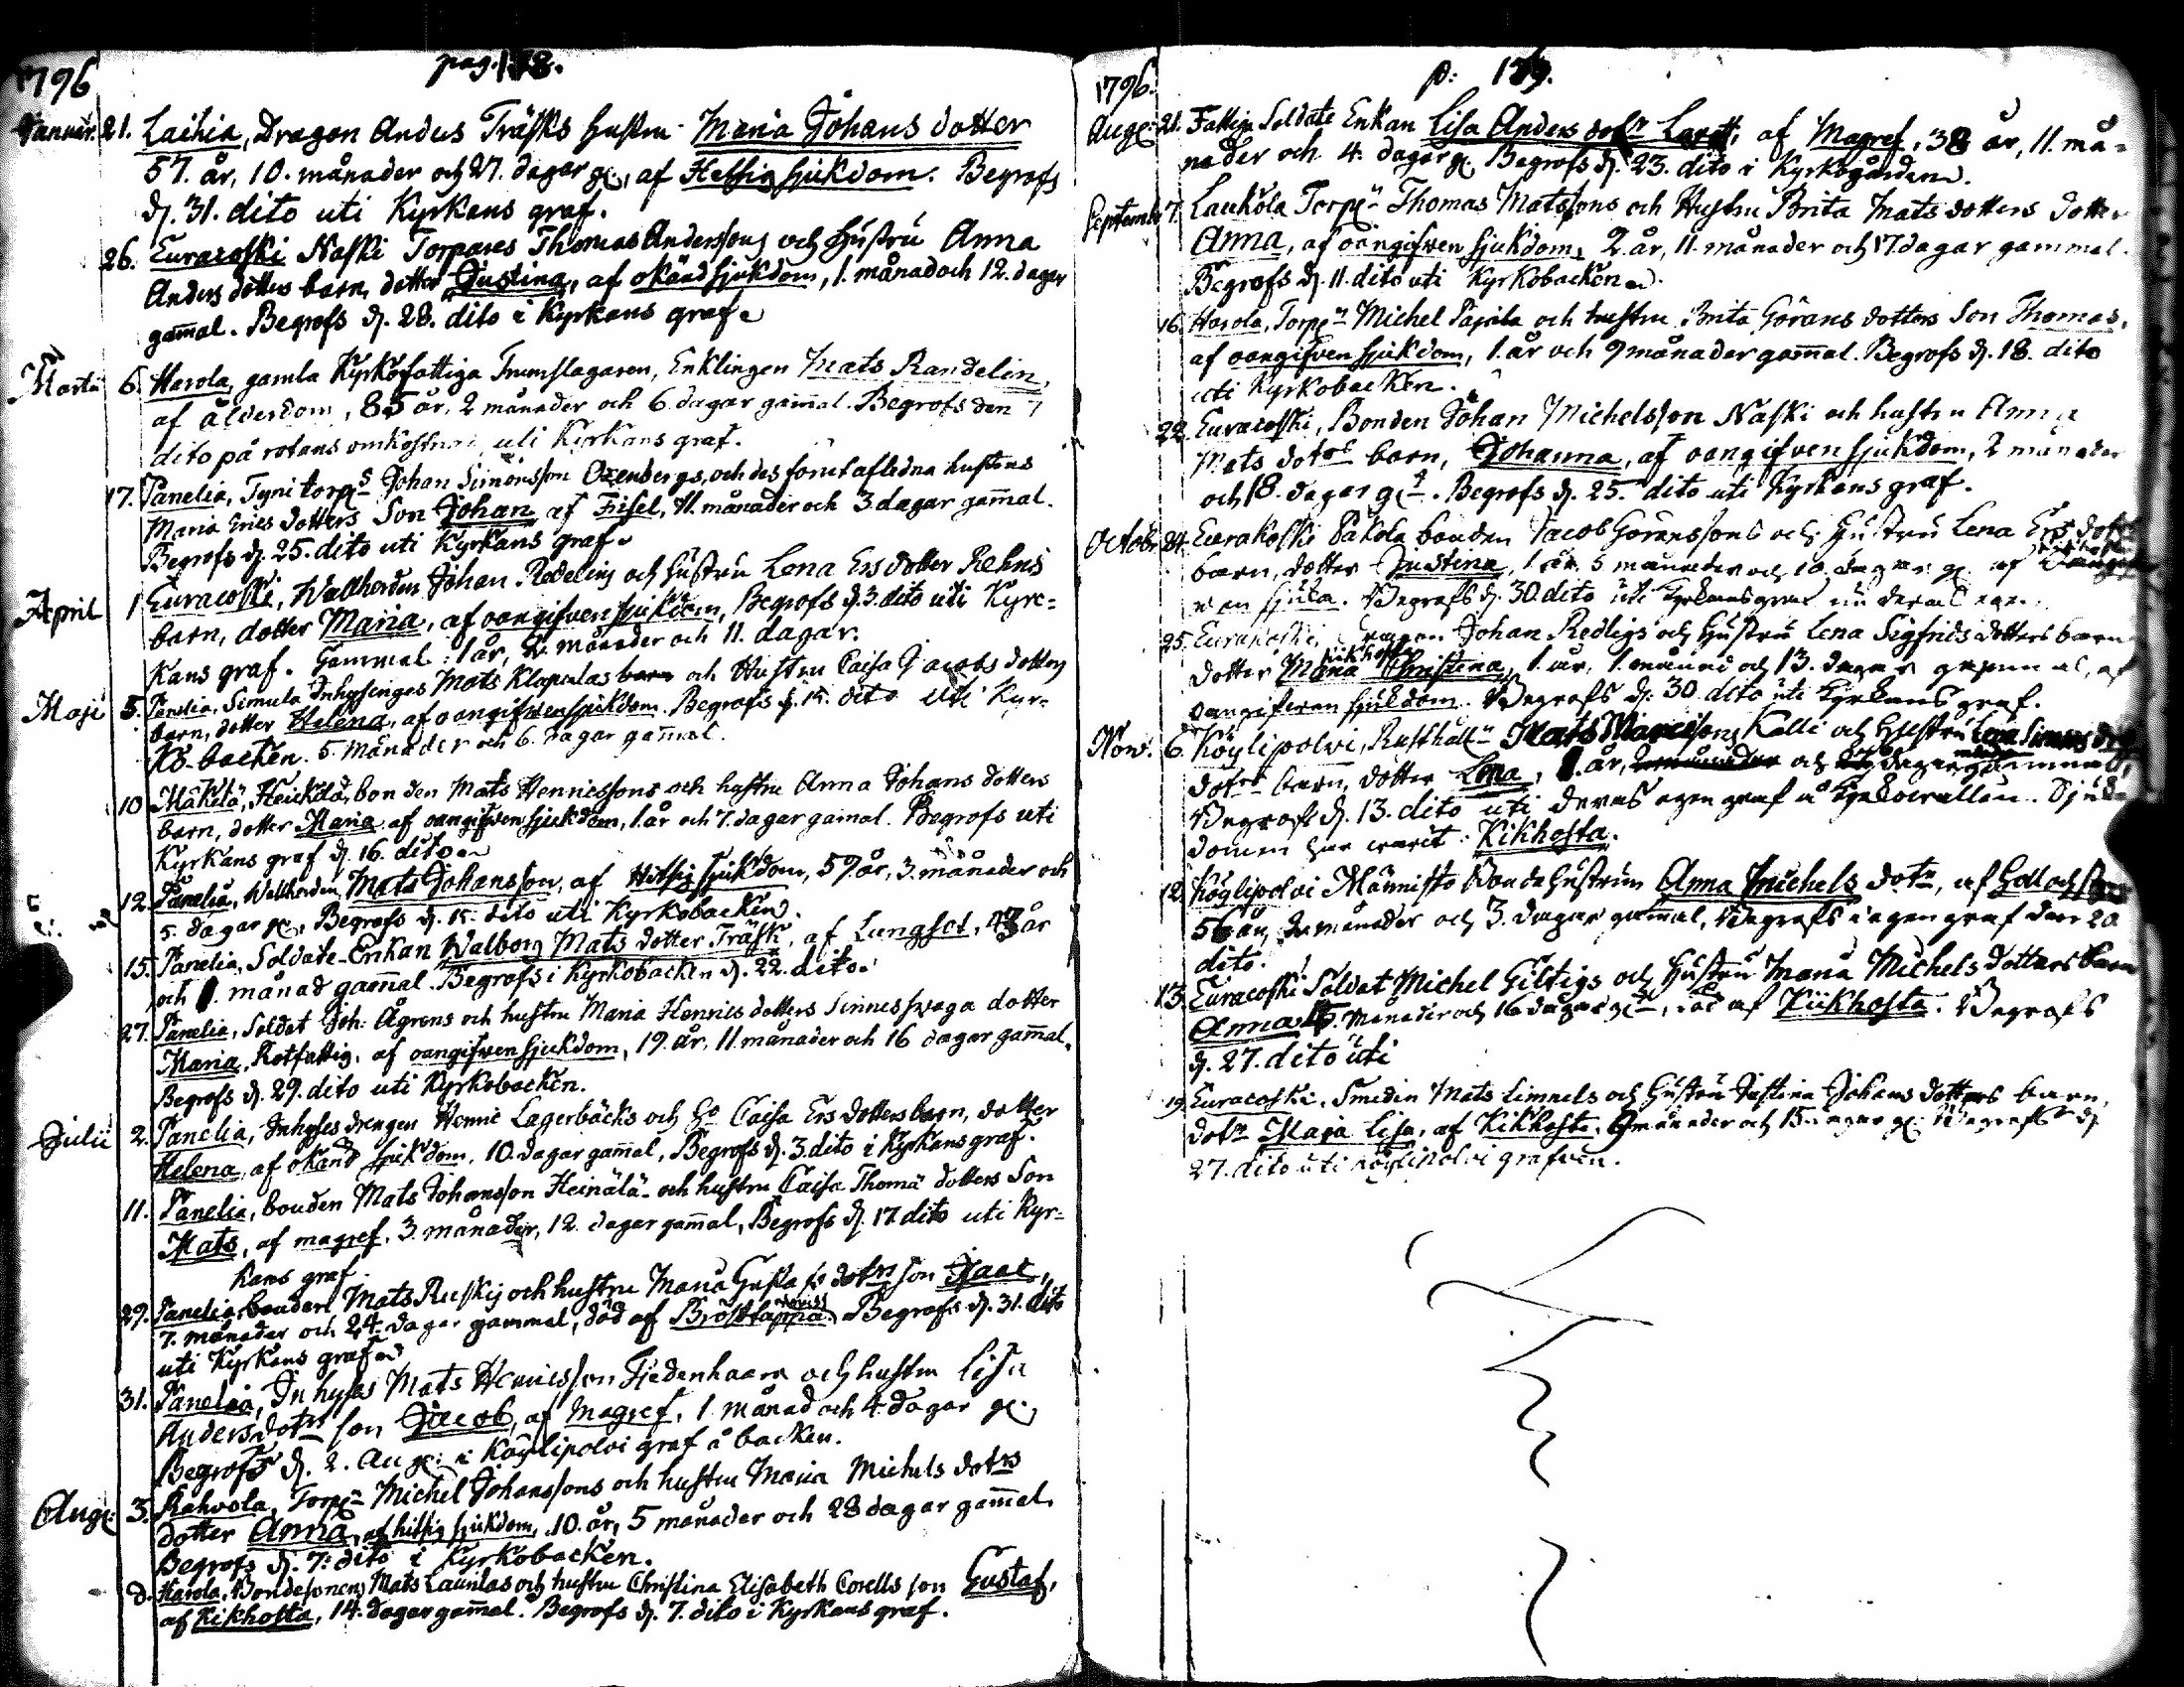 1796
pag. 178.
Januar. 21. Laihia, Dragon Andus Träsks hustru Maria Johans dotter
57. år, 10. månader och 27. dagar g., af Hetsig sjukdom. Begrofs
d. 31. dito uti Kyrkans graf.
26. Euracoski Naski Torpares Thomas Anderssons och hustru Anna
Anders dotters barn, dotter Justina, af okänd sjukdom, 1. månad och 12. dagar
gamal. Begrofs d. 28. dito i Kyrkans graf.
Martii 6. Harola, gamla Kyrkofattiga Trumslagaren, Enklingen Mats Randelin,
af ålderdom, 85 år, 2 månader och 6 dagar gamal. Begrofs den 7
dito på rotans omkostnad uti Kyrkans graf.
17. Panelia, Tyni torp. Johan Simonsson Oxenbergs, och des förut aflidna hustrus
Maria Erics dotters Son Johan af Frisel, 11. månader och 3. dagar gamal.
Begrofs d. 25. dito uti Kyrkans graf.
April 1 Euracoski, Wallherden Johan Redelins och hustru Lena Ers dotter Rehns
barn, dotter Maria, af oangifven sjukdom, Begrofs d. 3. dito uti Kyr-
kans graf. Gammal: 1 år, månader och 11. dagar.
Maji 5. Panelia, Simula Inhysinges Mats Klapulas barn och Hustru Caisa Jacobs dotters
barn, dotter Helena, af oangifwen sjukdom. Begrofs d. 15. dito uti Kyr-
ko-backen. 5. månader och 6. dagar gamal.
10 Mäkelä, Heickilä, bonden Mats Hennicssons och hustru Anna Johans dotters
barn, dotter Maria af oangifwen sjukdom, 1. år och 7. dagar gamal. Begrofs uti
Kyrkans graf d. 16. dito
12. Panelia, Wallherden, Mats Johansson, af Hitsig sjukdom, 59 år, 3. månader och
5. dagar g., Begrofs d. 15. dito uti Kyrkobacken.
15. Panelia, Soldate-Enkan Walborg Mats dotter Träsk, af Lungsot, 43 år
och 1. månad gamal. Begrofs i Kyrkobacken d. 22. dito.
27. Panelia, Soldat Joh: Ågrens och hustru Maria Henrics dotters Sinnessvaga dotter
Maria, Rotfattig, af oangifwen sjukdom, 19. år, 11. månader och 16 dagar gamal.
Begrofs d. 29. dito uti Kyrkobacken.
Julii 2. Panelia, Inhyses drengen Hennic Lagerbäcks och H. Caisa Ers dotters barn, dotter
Helena af okänd sjukdom. 10. dagar gamal, Begrofs d. 3. dito i Kyrkans graf.
11. Panelia, bonden Mats Johansson Heinälä och hustru Caisa Thomä dotters Son
Mats, af magref, 3. månader, 12. dagar gamal, Begrofs d. 17. dito uti Kyr-
kans graf.
29. Panelia, bonden Mats Ruskis och hustru Maria Gustafs dotrs son Isaac,
7. månader och 24. dagar gammal, död af Bröst Begrofs d. 31. dito
uti Kyrkans graf
31. Panelia, Inhyses Mats Hennicsson Fjedenhaara och hustru Lisa
Anders dotrs son Jacob, af Magref, 1 månad och 4. dagar g.,
Begrofs d. 2. Aug: i Köylipolvi graf å backen.
Aug: 3. Kahvola, Torp. Michel Johanssons och hustru Maria Michels dotrs
dotter Anna, af hitsig sjukdom, 10. år, 5 månader och 28 dagar gamal.
Begrofs d. 7: dito i Kyrkobacken.
d. Harola, Bondesonens Mats Launilas och hustru Christina Elisabeth Corells son Gustaf,
af Kikhosta, 14. dagar gamal. Begrofs d. 7. dito i Kyrkans graf.
1796.
p: 179.
Aug: 21. Fattiga Soldate Enkan Lisa Anders dotr af Magref, 38 år, 11. må-
nader och 4. dagar g. Begrofs d. 23. dito i Kyrkogården.
Septembr 7. Laukola Torp. Thomas Matssons och Hustru Brita Mats dotters dotter
Anna, af oangifven sjukdom, 2. år, 11. månader och 17. dagar gammal.
Begrofs d. 11. dito uti Kyrkobacken.
16. Harola, Torp. Michel Pajula och hustru Brita Görans dotters Son Thomas,
af oangifven sjukdom, 1. år och 9 månader gamal. Begrofs d. 18. dito
uti Kyrkobacken.
22. Euracoski, Bonden Johan Michelsson Naski och hustru Anna
Mats dotrs barn, Johanna, af oangifven sjukdom, 2 månader
och 18. dagar g. Begrofs d. 25. dito uti Kyrkans graf.
Octobr 24. Eurakoski Pakola bonden Jacob Göranssons och Hustru Lena Ers dotrs
barn, dotter Justina, 1 år, 5 månader och 10 dagar g. af
sjuka. Begrofs d. 30. dito uti Kyrkans graf
25. Eurakoski, Dragon Johan Redligs och Hustru Lena Sigfrids dotters barn
dotter Maria Christina, 1. år, 1. månad och 13. dagar gammal, af
kikhosta
oangifven sjukdom. Begrofs d. 30. dito uti Kyrkans graf.
Nov: 6. Köylipolvi, Rusthåll. Mats Kalli och Hustru Lena Simons
dotrs barn, dotter Lena, 1. år, och dagar gammal,
Begrofs d. 13. dito uti deras egen graf å Kyrkowallen. Sjuk-
domen har warit: Kikhosta.
12. Köylipolvi Männistö Bonde Hustrun Anna Michels dotr, af Håll och
56 år, 2 månader och 3. dagar gamal, Begrofs i egen graf den 20
dito.
13. Euracoski Soldat Michel Giltigs och Hustru Maria Michels dotters barn
Anna 15. månader och 16 dagar g., död af Kikhosta. Begrofs
d. 27. dito uti
19. Euracoski. Smeden Mats Limnels och Hustru Justina Johans dotters barn,
dotr Maja Lisa, af Kikhosta, 9 månader och 15. dagar g: Begrofs d.
27. dito uti Köylipolvi grafven.